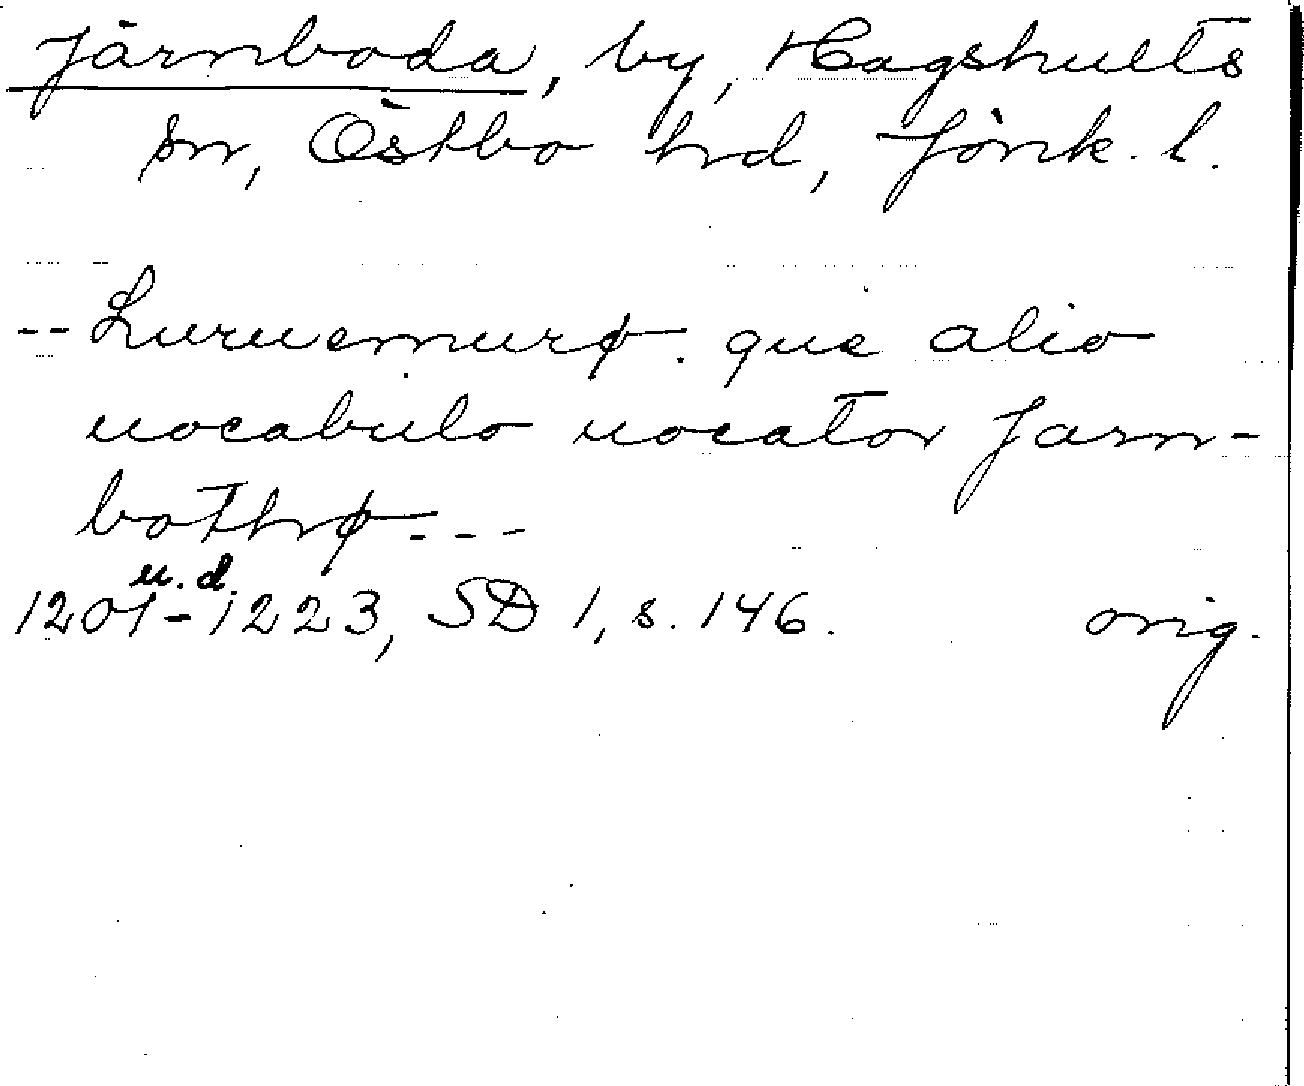 Järnboda, by, Hagshults
sn, Östbo hrd, Jönk. l.
-- Luruemurø. que alio
uocabulo uocator Jarn-
bothrø---
u.d.
1201-1223, SD 1, s. 146. orig.